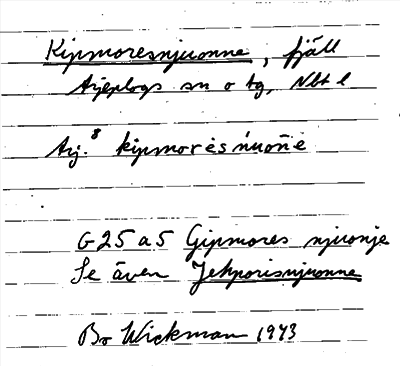 Kipmoresnjuonne, fjäll
Arjeplogs sn o tg, Nbt l
Arj.⁸ kipmorėsńuoñe
G25a5 Gipmores njuonje
Se även Jehporisnjuonne
Bo Wickman 1973